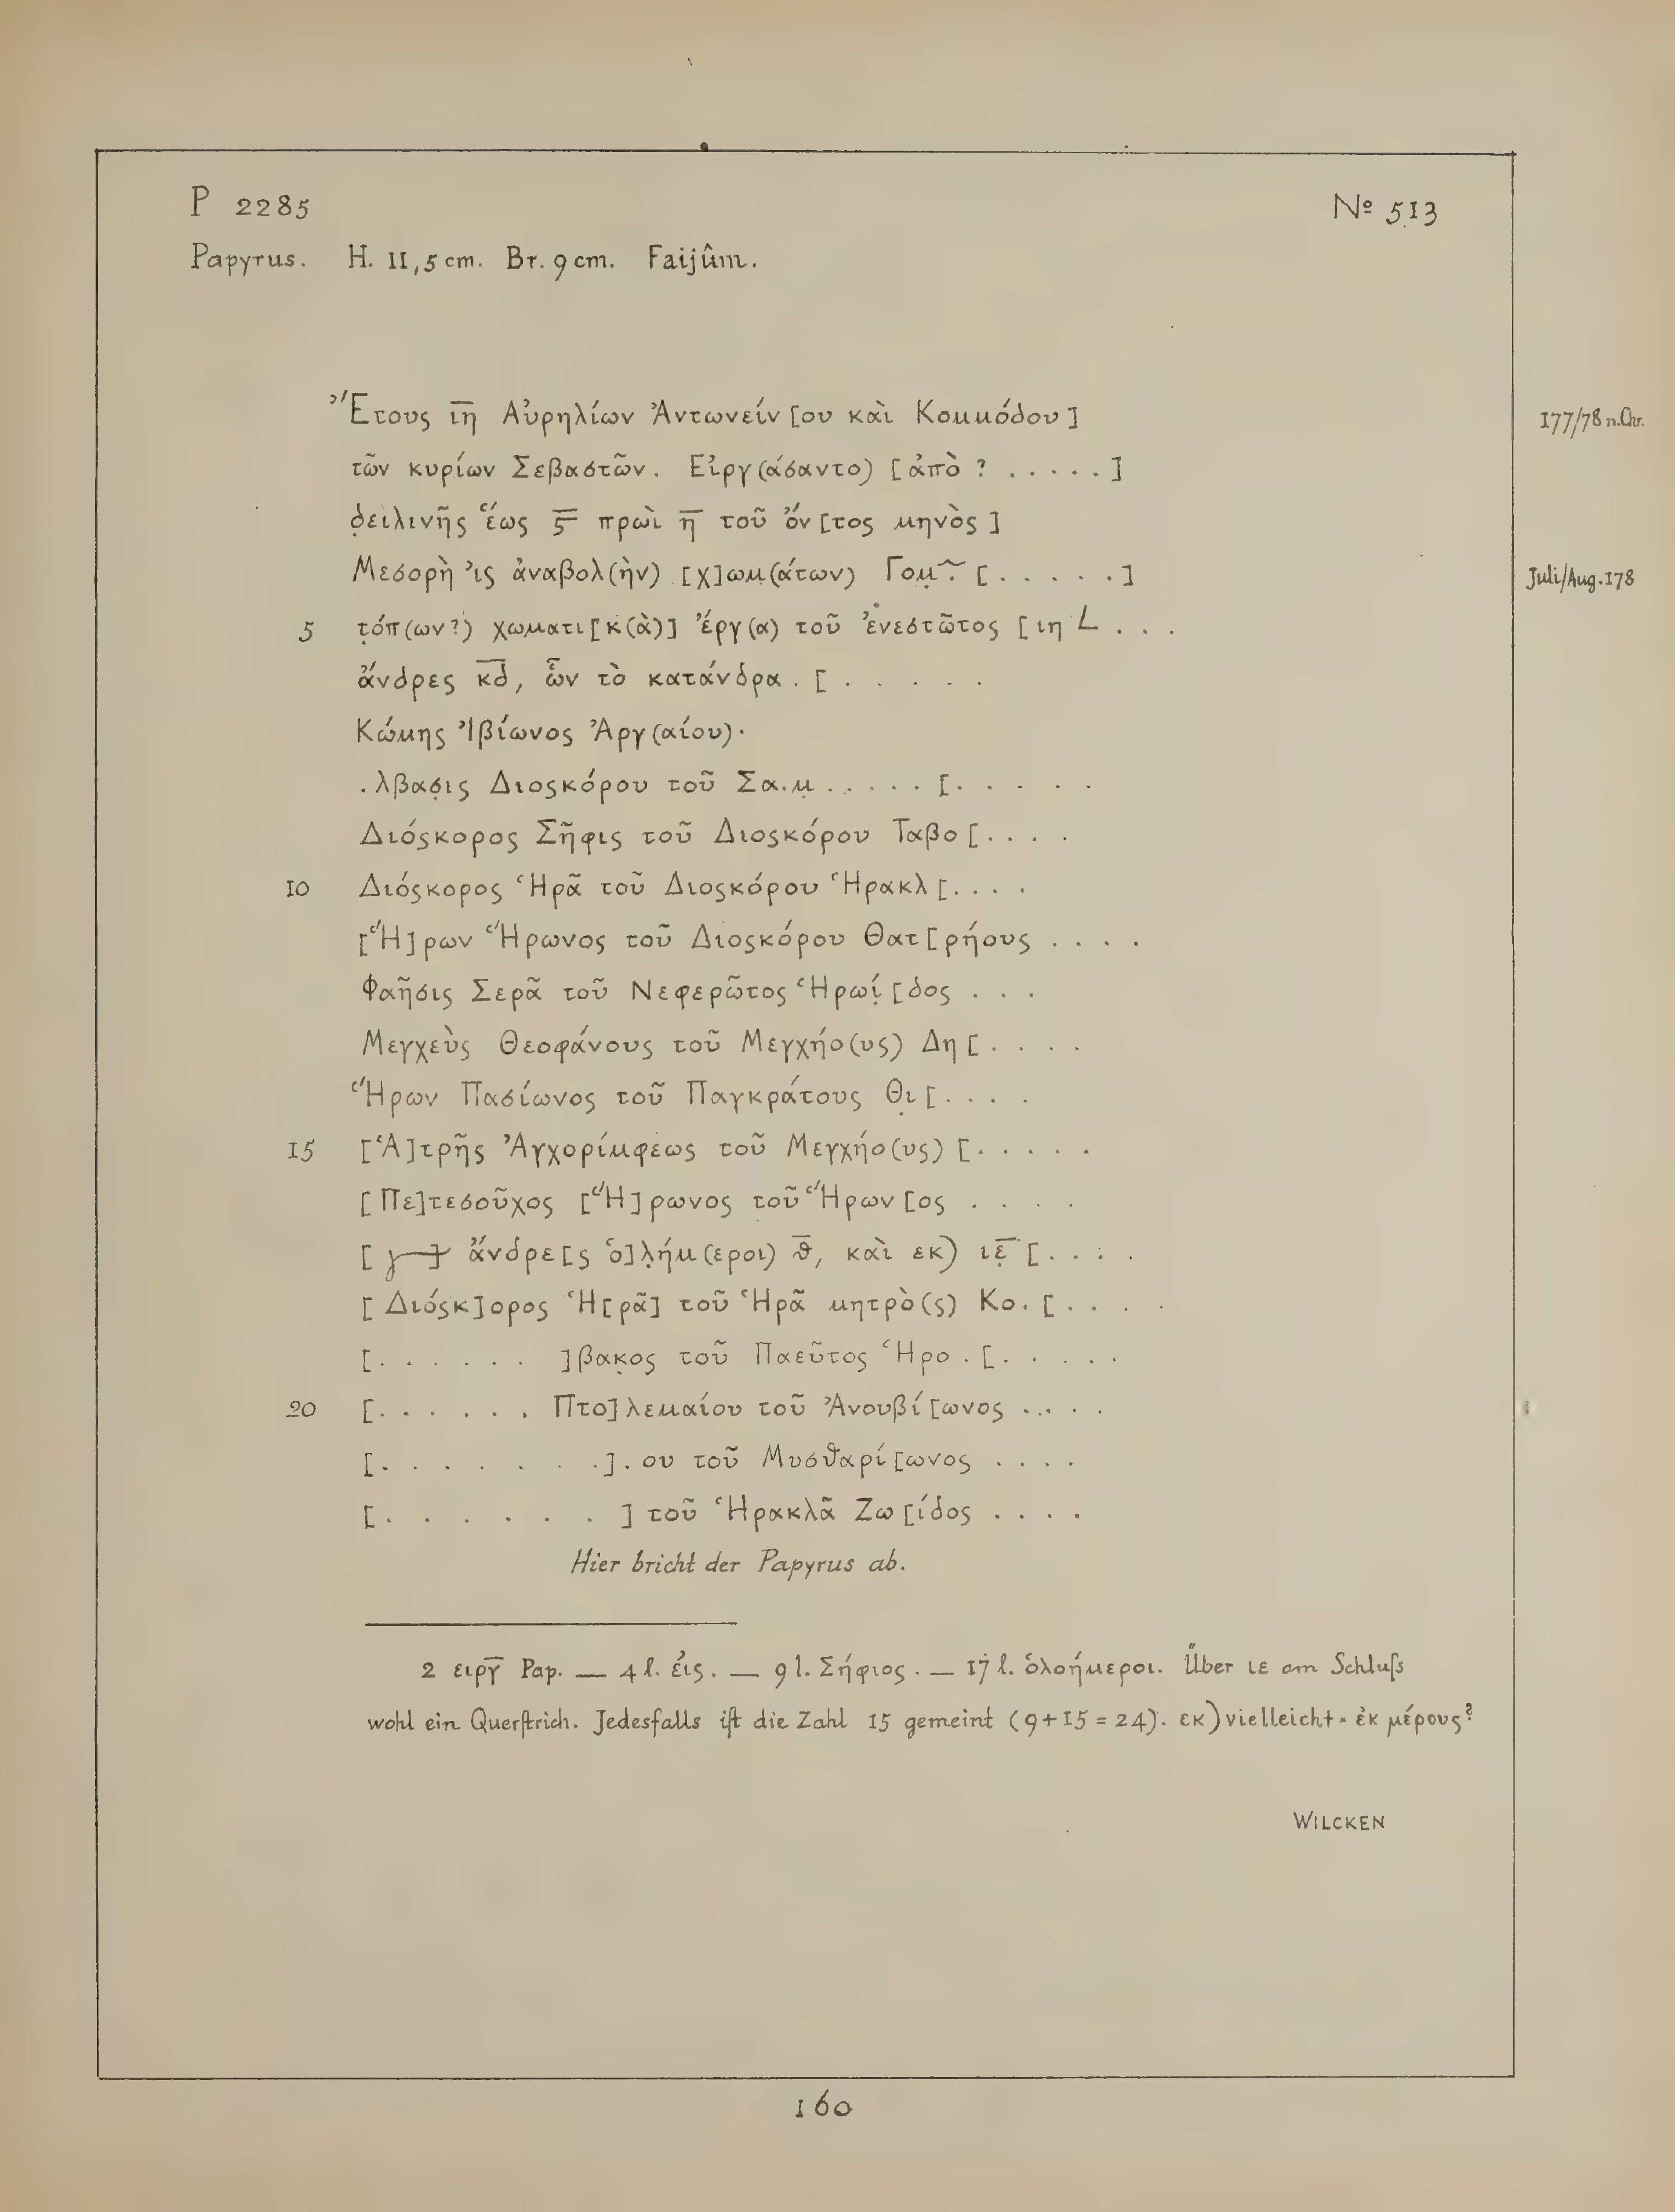 P 2285 Nº 513
Papyrus. H. 11,5 cm. Br. 9 cm. Faijûm.
Ἔτους ι̅η̅ Αὐρηλίων Ἀντωνείν[ου καὶ Κομμόδου] 177/78 n.Chr.
τῶν κυρίων Σεβαστῶν. Εἰργ(άσαντο) [ἀπὸ ? . . . . .]
δ̣ειλινῆς ἕως ϛ̅ πρωὶ η̅ τοῦ ὄν[τος μηνὸς]
Μεσορὴ ἰς ἀναβολ(ὴν) [χ]ωμ̣(άτων) Γομ̣ . [. . . . .] Juli/Aug. 178
5 τ̣όπ(ων?) χωματι[κ(ὰ)] ἔργ(α) τοῦ ἐνεστῶτος [ιη L . . .
ἄνδρες κ̅δ̅, ὧν τὸ κατάνδρα . [ . . . . .
Κώμης Ἰβίωνος Ἀργ(αίου)·
. λβασ̣ις Διοςκόρου τοῦ Σα.μ̣ . . . . . [. . . . .
Διόςκορος Σῆφις τοῦ Διοςκόρου Ταβο[. . . .
10 Διόςκορος Ἡρᾶ τοῦ Διοςκόρου Ἡρακλ[. . . .
[Ἥ]ρων Ἥρωνος τοῦ Διοςκόρου Θατ[ρήους . . . .
Φαῆσις Σερᾶ τοῦ Νεφερῶτος Ἡρωί̣[δος . . .
Μεγχεὺς Θεοφάνους τοῦ Μεγχήο(υς) Δη[. . . .
Ἥρων Πασίωνος τοῦ Παγκράτους Θ̣ι[. . . .
15 [Ἁ]τρῆς Ἀγχορίμφεως τοῦ Μεγχήο(υς) [. . . . .
[Πε]τεσοῦχος [Ἥ]ρωνος τοῦ Ἥρων[ος . . . .
[ ] ἄνδρε[ς ὁ]λ̣ήμ(εροι) θ̅, καὶ εκ) ιε̣̅ [. . . .
[Διόςκ]ορος Ἡ[ρᾶ] τοῦ Ἡρᾶ μητρὸ(ς) Κο. [. . . .
[. . . . . . ]βακ̣ος τοῦ Παεῦτος Ἡρο . [. . . . .
20 [. . . . . . Πτο]λεμαίου τοῦ Ἀνουβί[ωνος . . . .
[. . . . . . .] . ου τοῦ Μυσθαρί[ωνος . . . .
[. . . . . . ] τοῦ Ἡρακλᾶ Ζω[ίδος . . . .
Hier bricht der Papyrus ab.
2 ειργ̅ Pap. — 4 l. εἰς. — 9 l. Σήφιος. — 17 l. ὁλοήμεροι. Über ιε am Schluſs
wohl ein Querſtrich. Jedesfalls iſt die Zahl 15 gemeint (9+15=24). εκ) vielleicht = ἐκ μέρους?
WILCKEN
160